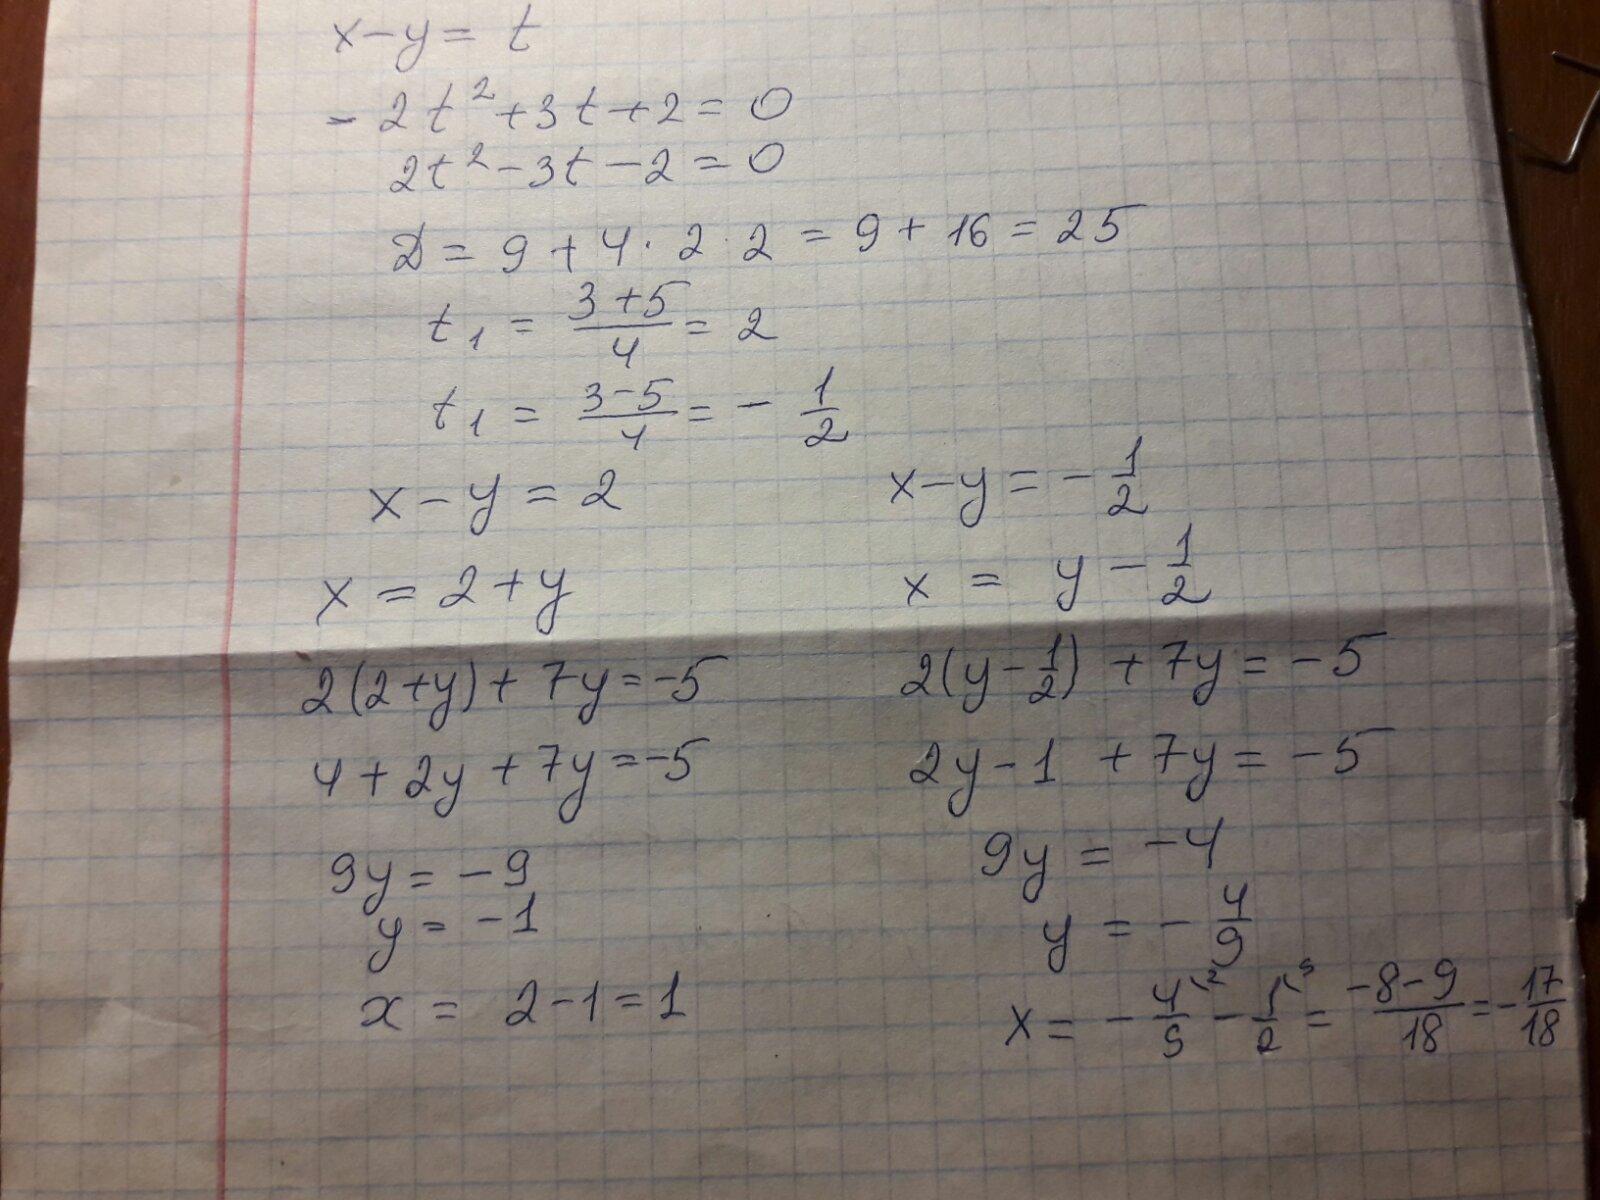 x-y = t
- 2t² + 3t + 2 = 0
2t² - 3t - 2 = 0
D = 9 + 4 · 2 · 2 = 9 + 16 = 25
t₁ = (3+5)/4 = 2
t₁ = (3-5)/4 = - 1/2
x - y = 2
x = 2 + y
2(2+y) + 7y = -5
4 + 2y + 7y = -5
9y = -9
y = -1
x = 2-1 = 1
x-y = - 1/2
x = y - 1/2
2(y - 1/2) + 7y = -5
2y - 1 + 7y = -5
9y = -4
y = - 4/9
x = - 4/9 \2 - 1/2 \9 = (-8-9)/18 = - 17/18